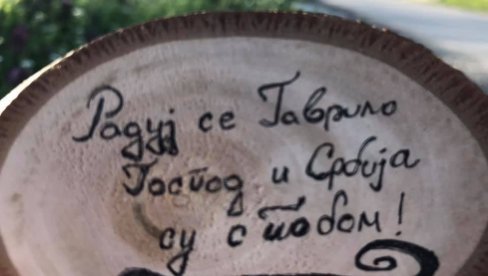 Радуј се Гаврило
Господ и Србија
су с тобом!